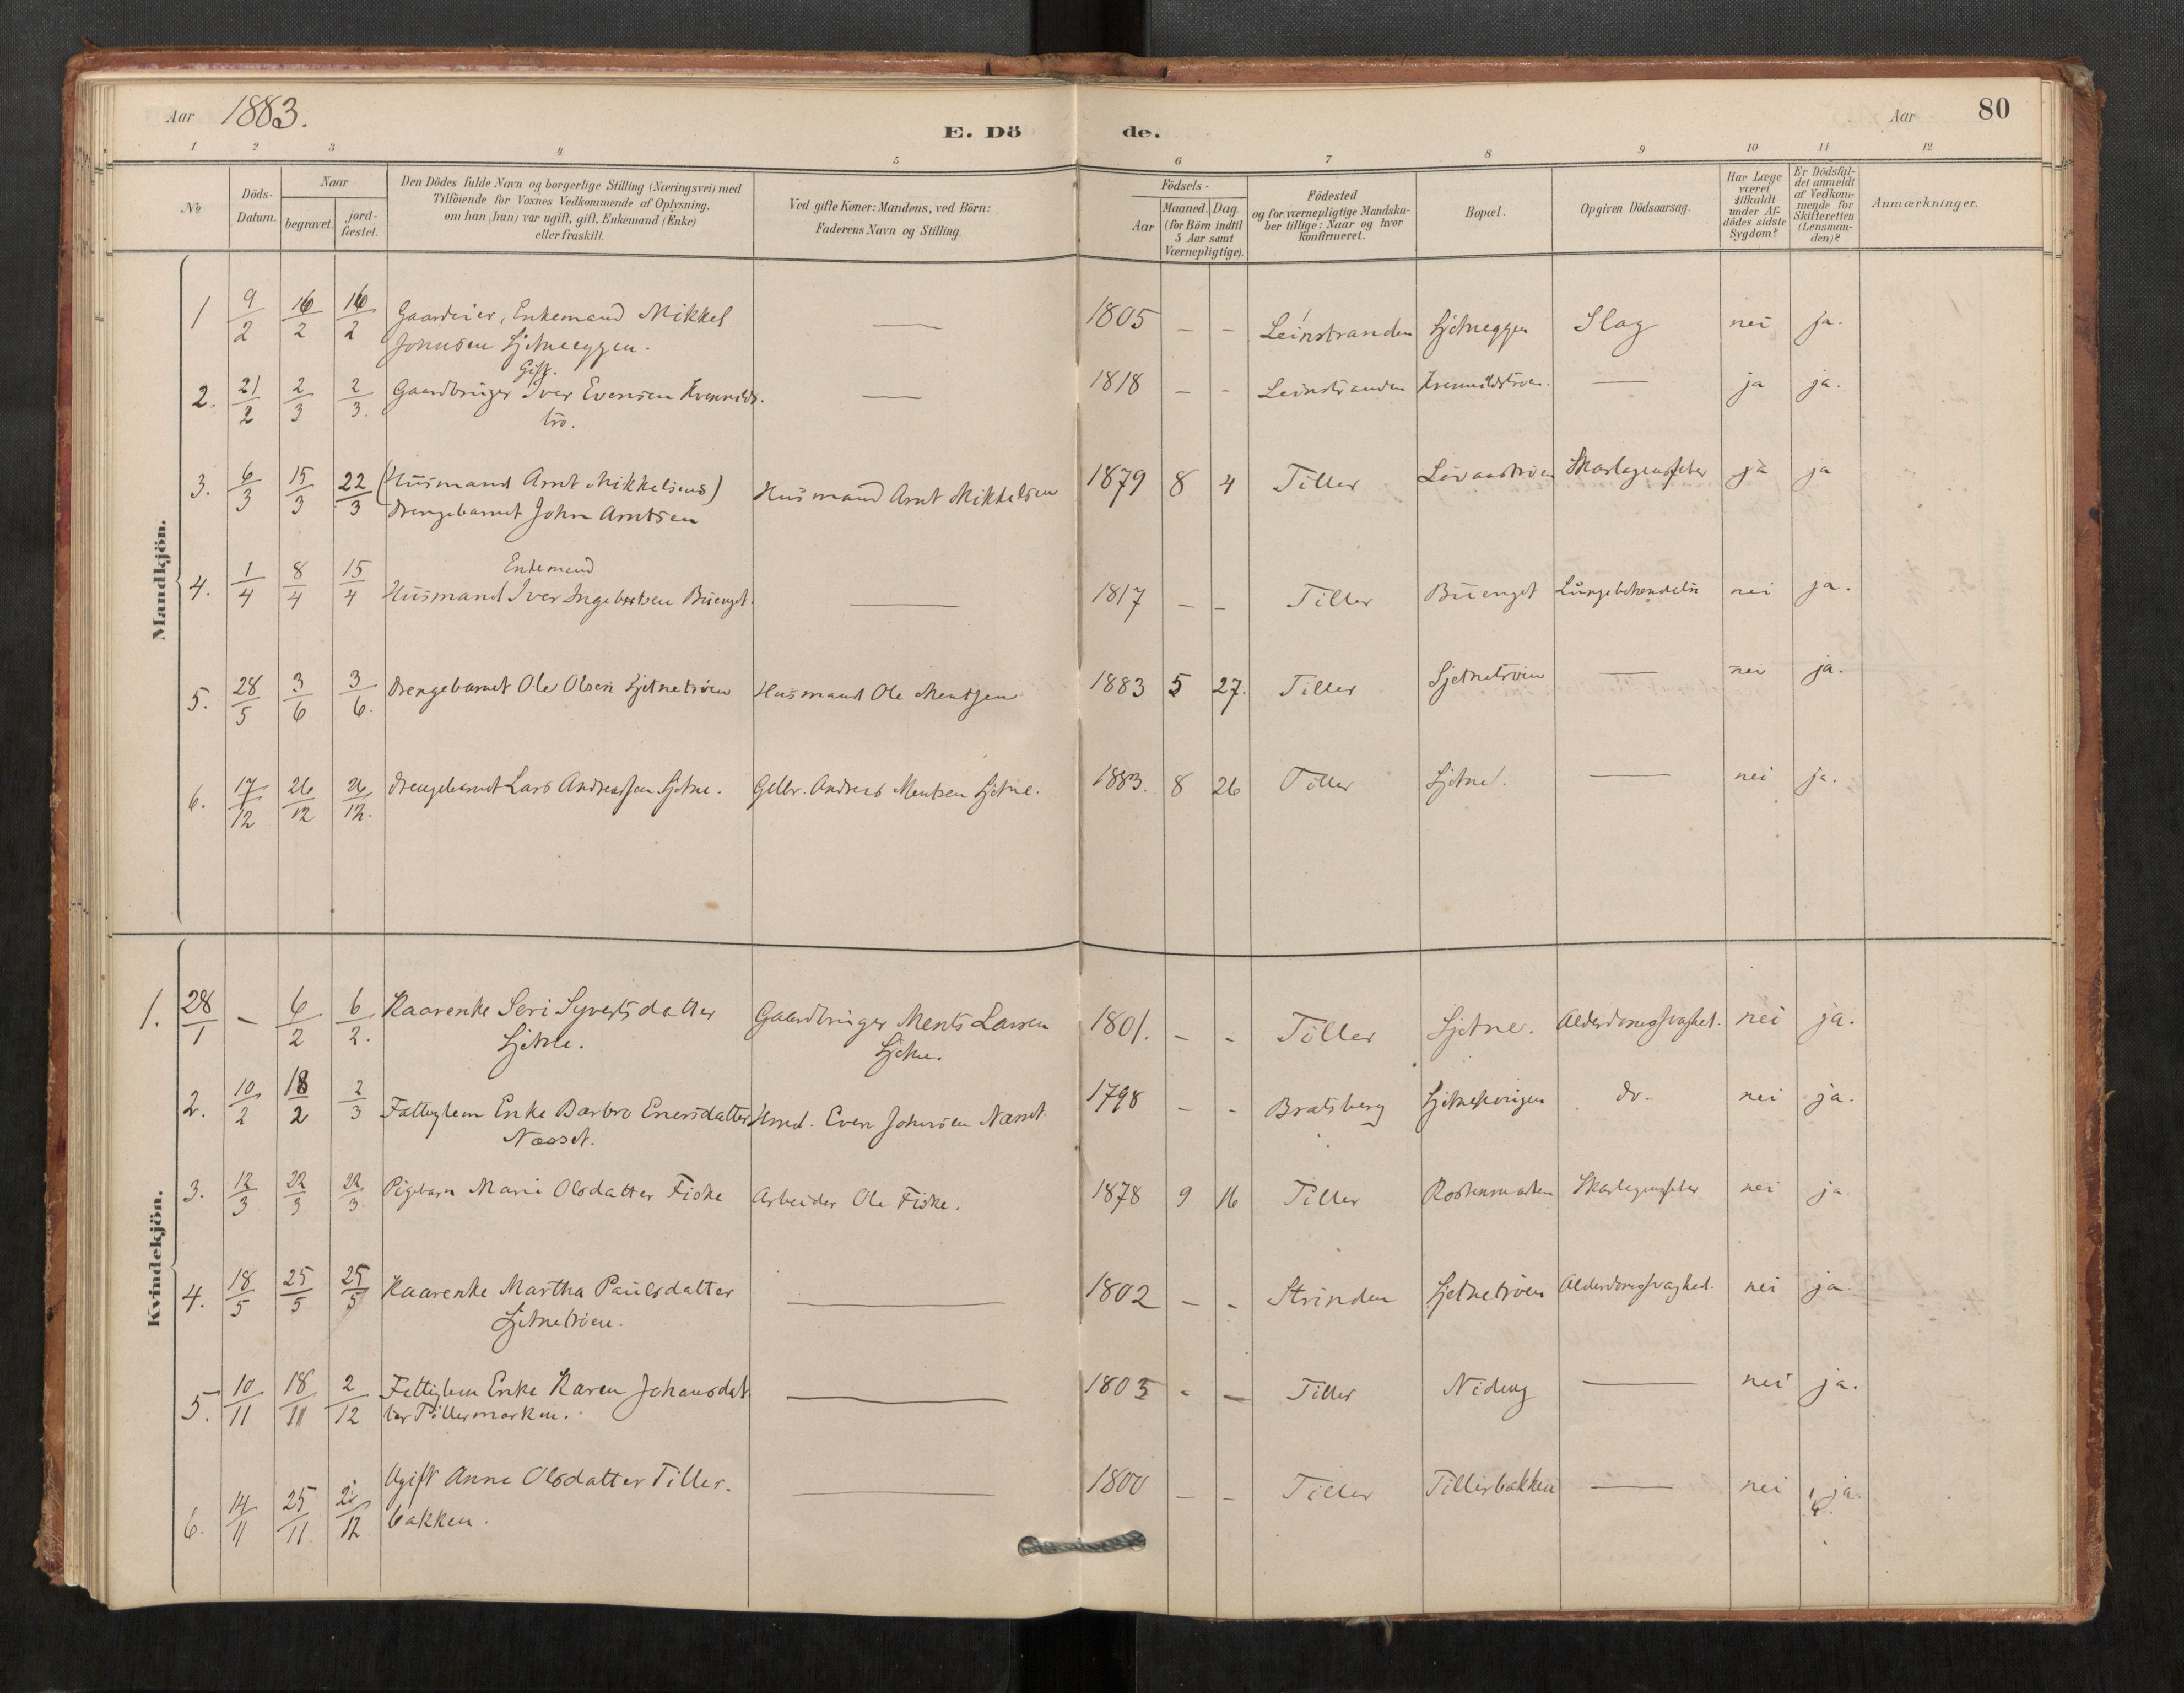 Aar 1883.
E. Dö de.
Aar 80
1 2 3 4 5 6 7 8 9 10 11 12
No.
Döds-Datum.
Naar
begravet.
jord-fæstet.
Den Dödes fulde Navn og borgerlige Stilling (Næringsvei) med
Tilföiende for Voxnes Vedkommende af Oplysning,
om han (hun) var ugift, gift, Enkemand (Enke)
eller fraskilt.
Ved gifte Koner: Mandens, ved Börn:
Faderens Navn og Stilling.
Födsels-
Aar
Maaned. Dag.
(for Börn indtil
5 Aar samt
Værnepligtige).
Födested
og for værnepligtige Mandska-
ber tillige: Naar og hvor
konfirmeret.
Bopæl.
Opgiven Dödsaarsag.
Har Læge
været
tilkaldt
under Af-
dödes sidste
Sygdom?
Er Dödsfal-
det anmeldt
af Vedkom-
mende for
Skifteretten
(Lensman-
den)?
Anmærkninger.
Mandkjön.
1 9/2 16/2 16/2 Gaardeier, Enkemand Mikkel — 1805 – – Leinstranden Sjetneggen Slag nei ja.
Johnsen Sjetneeggen.
Gift.
2. 21/2 2/3 2/3. Gaardbruger Iver Evensen Kvennilds- — 1818 – – Leinstranden Kvennildstroen. — ja ja.
trö.
3. 6/3 15/3 22/3 (Husmand Arnt Mikkelsens) Husmand Arnt Mikkelsen 1879 8 4 Tiller Skarlagensfeber ja ja
Drengebarnet John Arntsen
Enkemand
4. 1/4 8/4 15/4 Husmand Iver Ingebrtsen Buenget. — 1817 – – Tiller Buenget nei ja.
5. 28/5 3/6 3/6. Drengebarnet Ole Olsen Sjetnetröen Husmand Ole Mentzen 1883 5 27. Tiller Sjetnetröen — nei ja.
6. 17/12 26/12 26/12. Drengebarnet Lars Andreassen Sjetne. Gdbr. Andreas Mentsen Sjetne. 1883. 8 26 Tiller Sjetne. — nei ja.
Kvindekjön.
1. 28/1 – 6/2 6/2. Kaarenke Seri Syvertsdatter Gaardbruger Ments Larsen 1801. – – Tiller Sjetne. Alderdomssvaghet. nei ja.
Sjetne. Sjetne.
2. 10/2 18/2 2/3 Fattiglem Enke Barbro Enersdatter Hmd. Even Johnsen Næsset. 1798 – – Bratsberg do. nei ja.
Næsset.
3. 12/3 22/3 22/3. Pigebarn Marie Olsdatter Fiske Arbeider Ole Fiske. 1878 9 16 Tiller Rostenmarken Skarlagensfeber nei ja
4. 18/5 25/5 25/5 Kaarenke Martha Paulsdatter — 1802 – – Strinden Sjetnetröen Alderdomssvaghed. nei ja
Sjetnetröen.
5. 10/11 18/11 2/12 Fattiglem Enke Karen Johansdat- — 1805 – – Tiller Nideng — nei ja.
ter Tillermarken.
6. 14/11 25/11 2/12 Ugift Anne Olsdatter Tiller- — 1800 – – Tiller Tillerbakken — nei ja.
bakken.